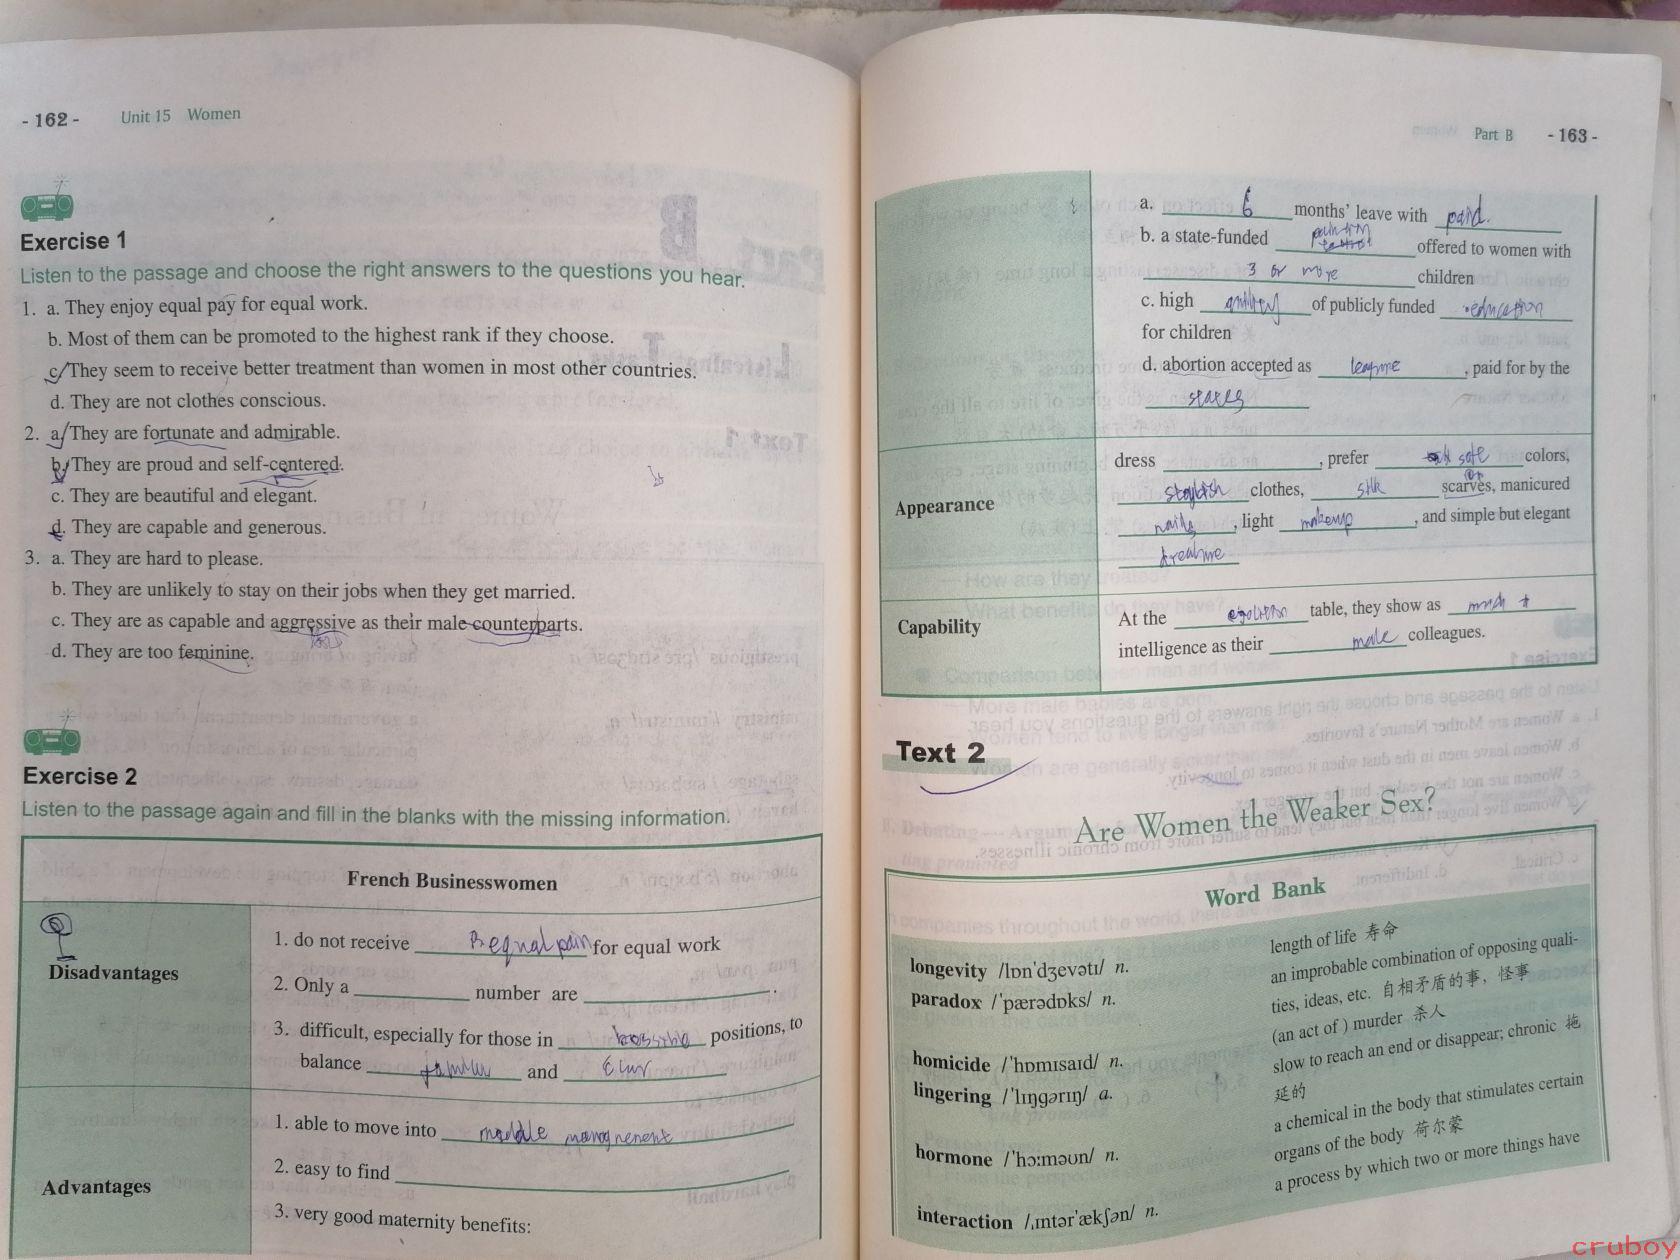 - 162 -
Unit 15 Women
Exercise 1
Listen to the passage and choose the right answers to the questions you hear.
1. a. They enjoy equal pay for equal work.
b. Most of them can be promoted to the highest rank if they choose.
c. They seem to receive better treatment than women in most other countries.
d. They are not clothes conscious.
2. a. They are fortunate and admirable.
b. They are proud and self-centered.
c. They are beautiful and elegant.
d. They are capable and generous.
3. a. They are hard to please.
b. They are unlikely to stay on their jobs when they get married.
c. They are as capable and aggressive as their male counterparts.
d. They are too feminine.
Exercise 2
Listen to the passage again and fill in the blanks with the missing information.
French Businesswomen
Disadvantages
1. do not receive equal for equal work
2. Only a number are .
3. difficult, especially for those in positions, to
balance and
Advantages
1. able to move into
2. easy to find
3. very good maternity benefits:
Part B
- 163 -
a. 6 months' leave with paid.
b. a state-funded offered to women with
3 or more children
c. high of publicly funded education
for children
d. abortion accepted as , paid for by the
states
Appearance
dress , prefer colors,
clothes, silk scarves, manicured
nails, light makeup, and simple but elegant
Capability
At the table, they show as much
intelligence as their male colleagues.
Text 2
Are Women the Weaker Sex?
Word Bank
longevity /lɒnˈdʒevətɪ/ n.
length of life 寿命
paradox /ˈpærədɒks/ n.
an improbable combination of opposing quali-
ties, ideas, etc. 自相矛盾的事,怪事
homicide /ˈhɒmɪsaɪd/ n.
(an act of ) murder 杀人
lingering /ˈlɪŋgərɪŋ/ a.
slow to reach an end or disappear; chronic 拖
延的
hormone /ˈhɔːməʊn/ n.
a chemical in the body that stimulates certain
organs of the body 荷尔蒙
interaction /ˌɪntərˈækʃən/ n.
a process by which two or more things have
cruboy